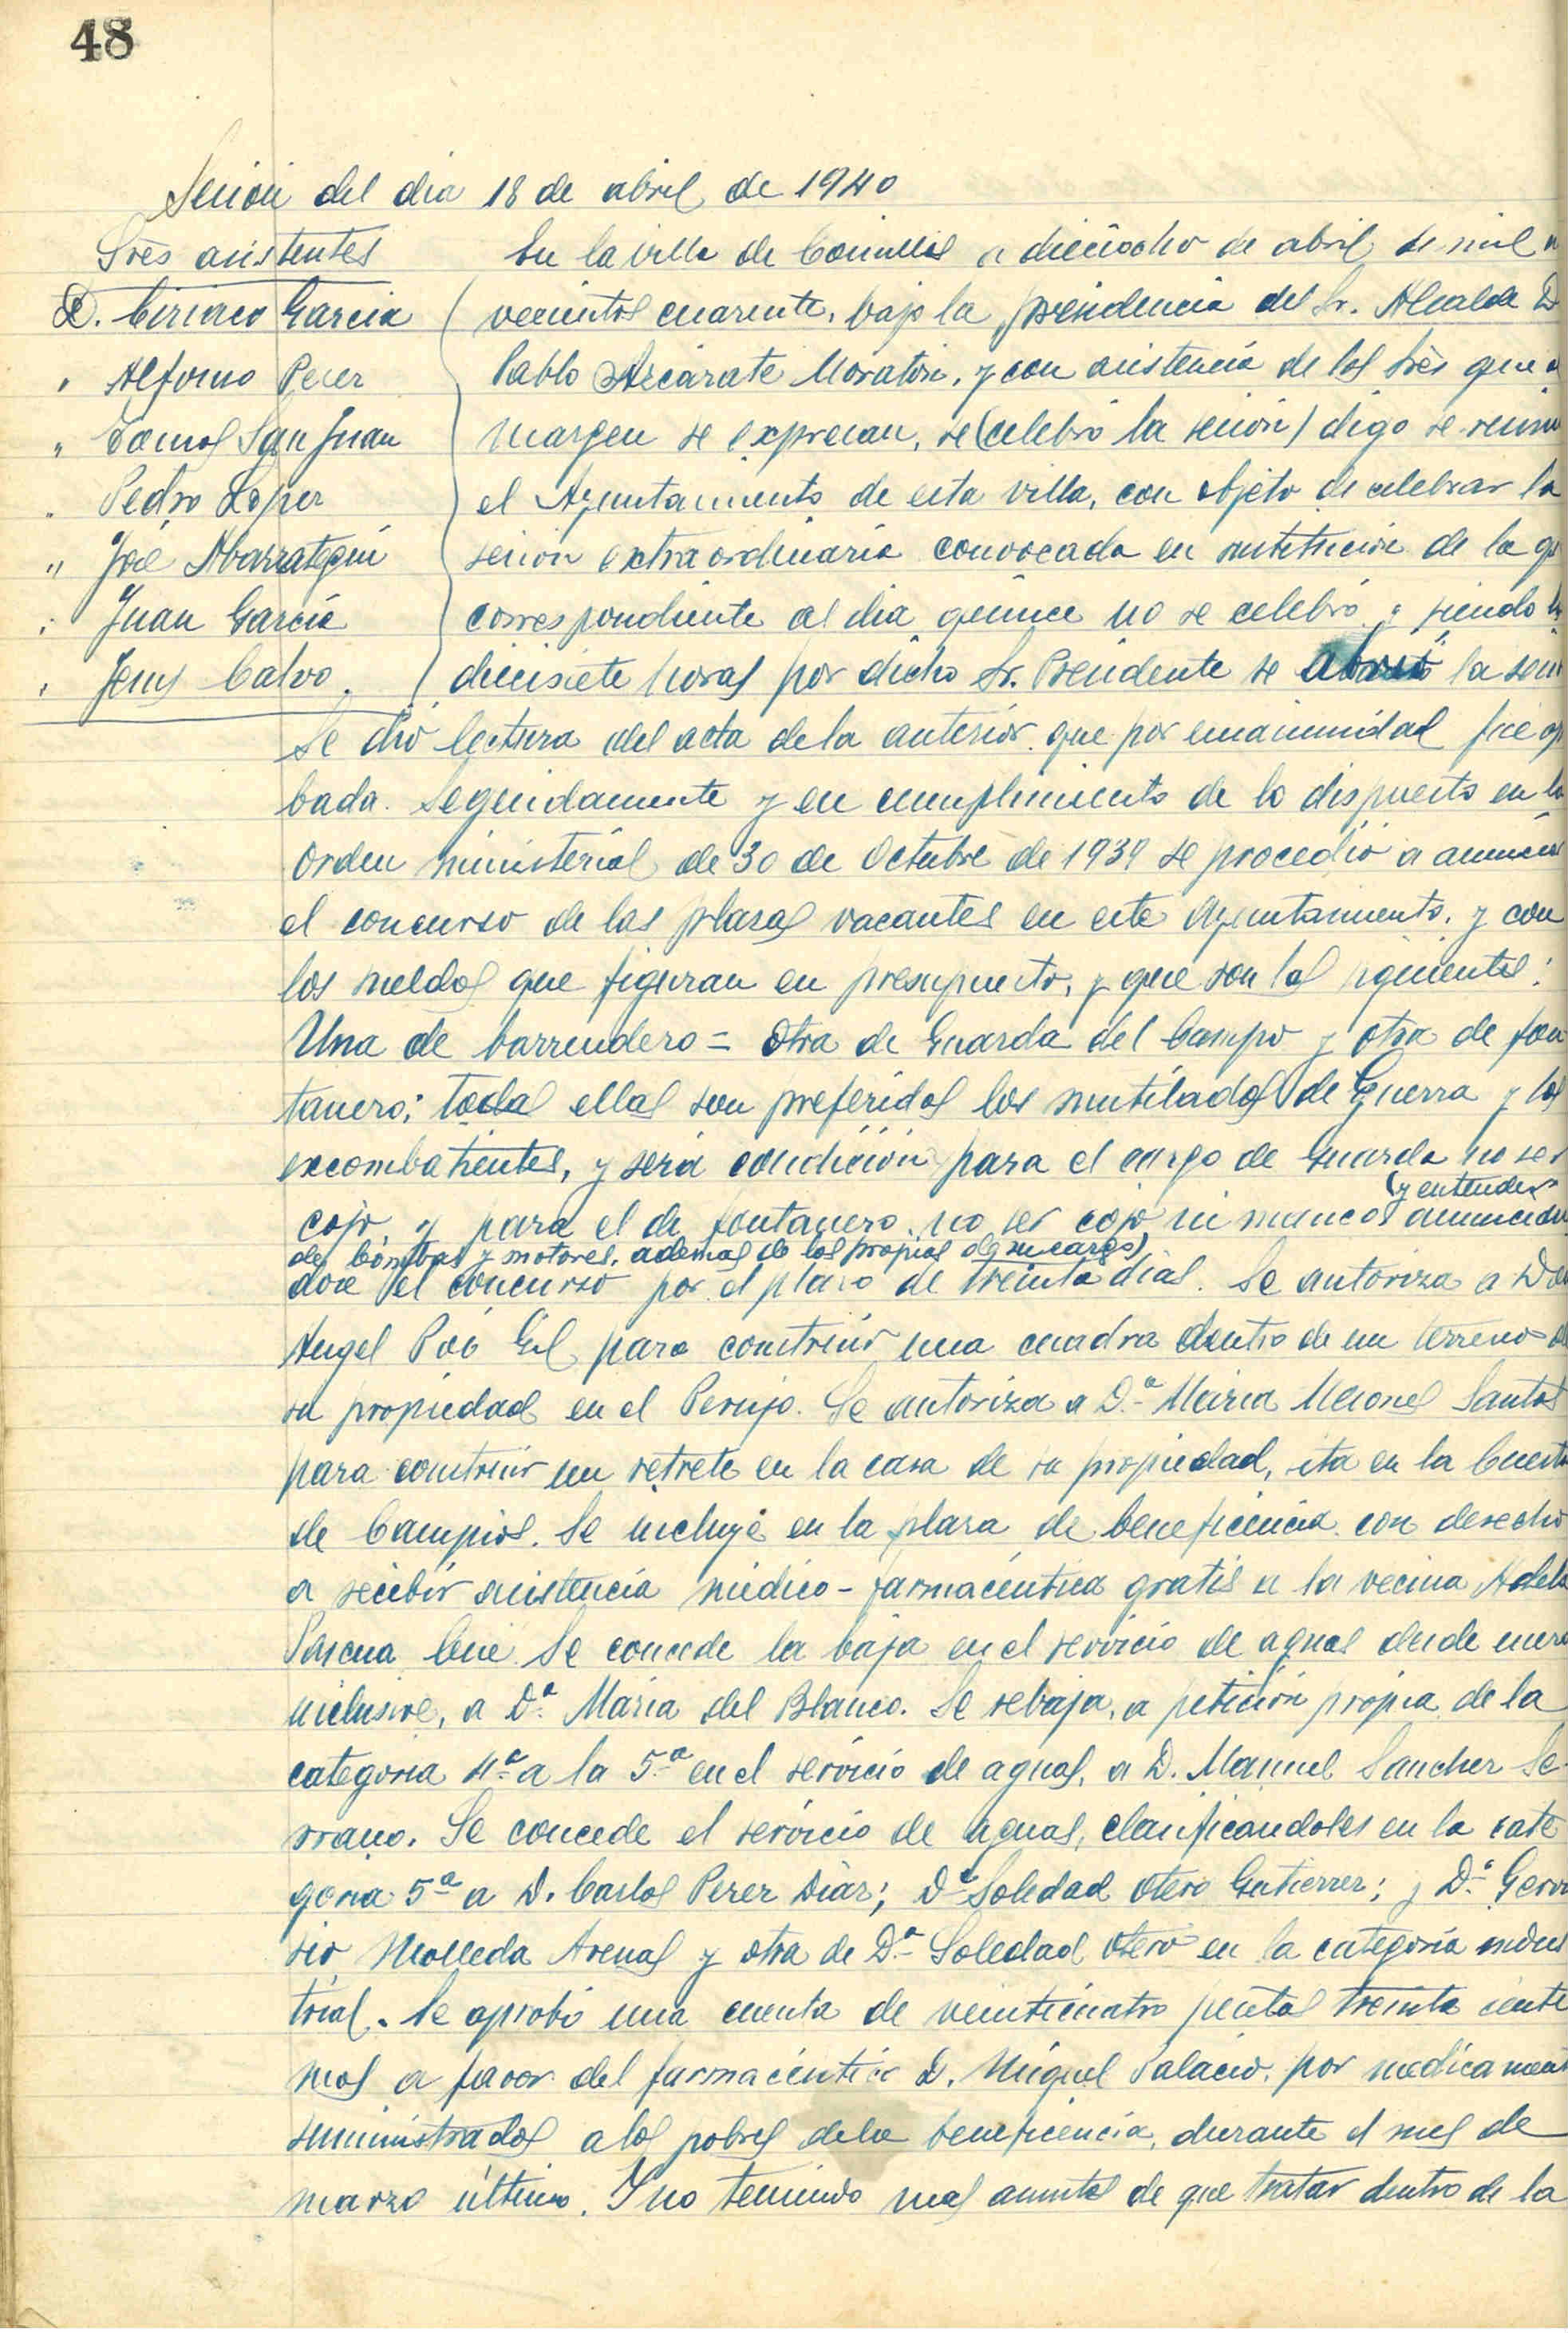 48
Sesión del dia 18 de abril de 1940
Sres asistentes
D. Ciriaco Garcia
" Alfonso Perez
" Tomas San Juan
" Pedro Lopez
" José Abarrategui
" Juan García
" Jesus Calvo.
En la villa de Comillas a dieciocho de abril de mil n
vecientos cuarenta, bajo la presidencia del Sr. Alcalde D
Pablo Azcárate Moratin, y con asistencia de los Sres que a
margen se expresan, se (celebró la sesión) digo se reunio
el Ayuntamiento de esta villa, con objeto de celebrar la
sesion extraordinaria convocada en sustitución de la qu
correspondiente al dia quince no se celebró, y siendo la
diecisiete horas por dicho Sr. Presidente se abrió la sesi
Se dió lectura del acta de la anterior que por unanimidad fue ap
bada. Seguidamente y en cumplimiento de lo dispuesto en la
Orden ministerial de 30 de Octubre de 1939 se procedió a anunciar
el concurso de las plazas vacantes en este Ayuntamiento, y con
los sueldos que figuran en presupuesto, y que son las siguientes:
Una de barrendero = Otra de Guarda del Campo y otra de fon
tanero; todas ellas son preferidos los mutilados de Guerra y los
excombatientes, y será condición para el cargo de Guarda no ser
(y entender
cojo, y para el de fontanero, no ser cojo ni manco anuncian
de bombas y motores, ademas de los propios de su cargo)
dose el concurso por el plazo de treinta dias. Se autoriza a Don
Angel Poó Gil para construir una cuadra dentro de un terreno de
su propiedad en el Perujo. Se autoriza a D.ª Maria Santos
para construir un retrete en la casa de su propiedad, sita en la Cuesta
de Campios. Se incluye en la plaza de beneficencia con derecho
a recibir asistencia médico-farmacéutica gratis a la vecina Adela
Pascua Cué. Se concede la baja en el servicio de aguas desde enero
inclusive, a D.ª María del Blanco. Se rebaja, a petición propia de la
categoria 4.ª a la 5.ª en el servicio de aguas, a D. Manuel Sanchez Se-
rrano. Se concede el servicio de aguas, clasificandoles en la cate
goria 5ª a D. Carlos Perez Diaz; Dª Soledad Otero Gutierrez; y D.ª Gerva
sio Molleda Arenas y otra de D.ª Soledad Otero en la categoría indus
trial. Se aprobó una cuenta de veinticuatro pesetas treinta centi
mos a favor del farmacéutico D. Miguel Palacio, por medicament
suministrados a los pobres de la beneficencia, durante el mes de
marzo último. Y no teniendo mas asuntos de que tratar dentro de la